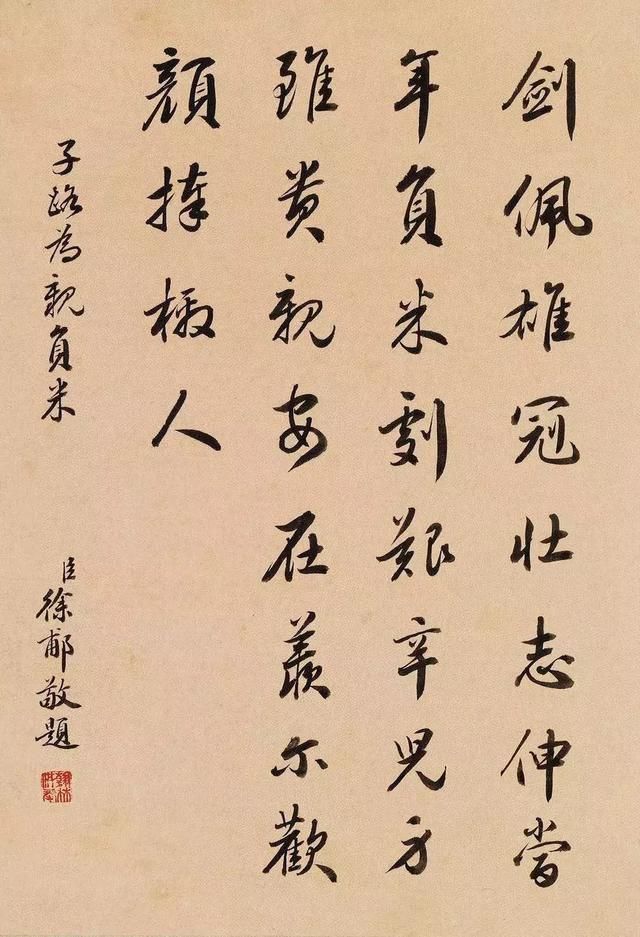 劍佩雄冠壯志伸當
年負米劇艱辛兒方
雖貴親安在羨尔歡
顏捧檄人
子路為親負米
臣徐郙敬題